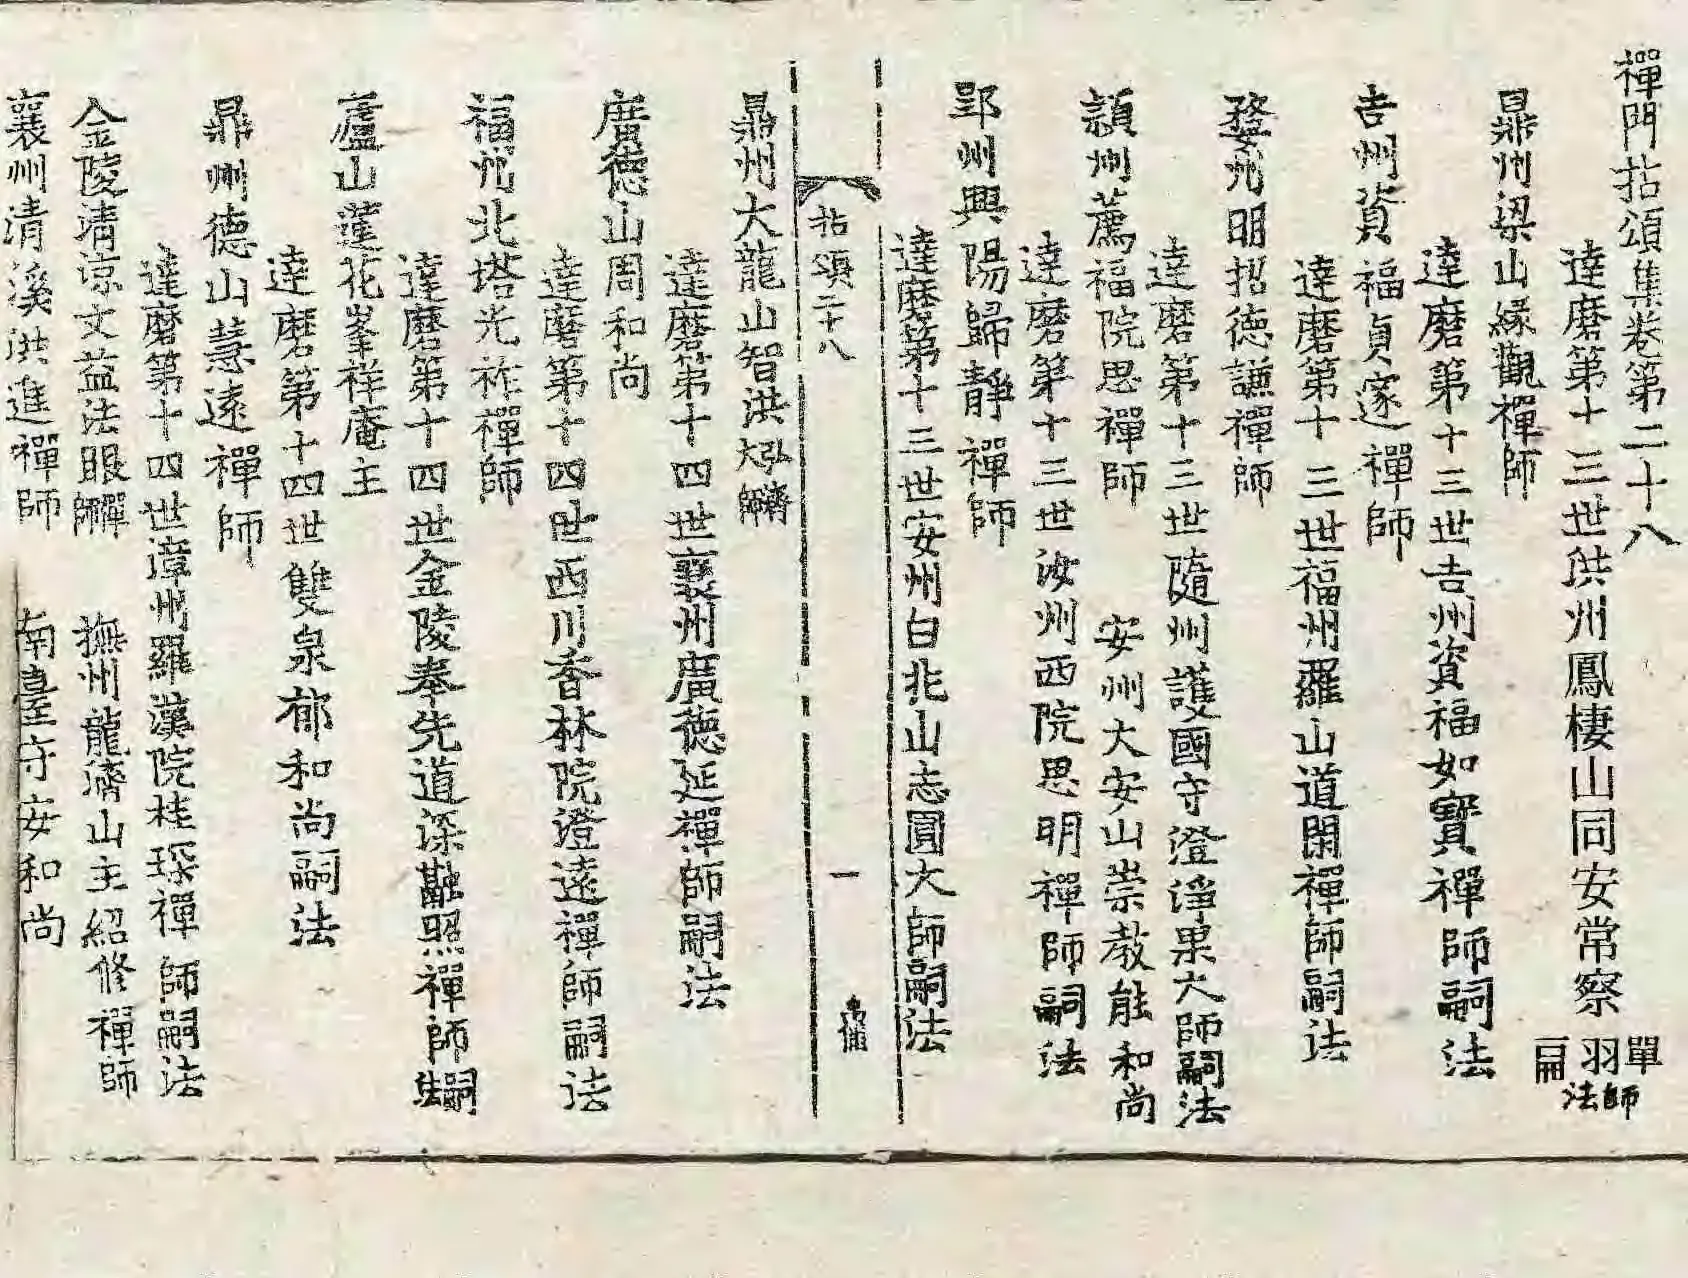 禪門拈頌集卷第二十八
達磨第十三世洪州鳳棲山同安常察禪師嗣法
鼎州梁山緣觀禪師
達磨第十三世吉州資福如寶禪師嗣法
吉州資福貞邃禪師
達磨第十三世福州羅山道閑禪師嗣法
婺州明招德謙禪師
達磨第十三世隨州護國守澄淨果大師嗣法
穎州薦福院思禪師 安州大安山崇教能和尚
達磨第十三世汝州西院思明禪師嗣法
郢州興陽歸靜禪師
達磨第十三世安州白兆山志圓大師嗣法
拈頌二十八 一
鼎州大龍山智洪弘濟大師
達磨第十四世襄州廣德延禪師嗣法
廣德山周和尚
達磨第十四世西川香林院澄遠禪師嗣法
福州北塔光祚禪師
達磨第十四世金陵奉先道深融照禪師嗣法
蘆山蓮花峯祥庵主
達磨第十四世雙泉郁和尚嗣法
鼎州德山慧遠禪師
達磨第十四世漳州羅漢院桂琛禪師嗣法
金陵淸凉文益法眼禪師 撫州龍濟山主紹修禪師
襄州清溪洪進禪師 南臺守安和尚